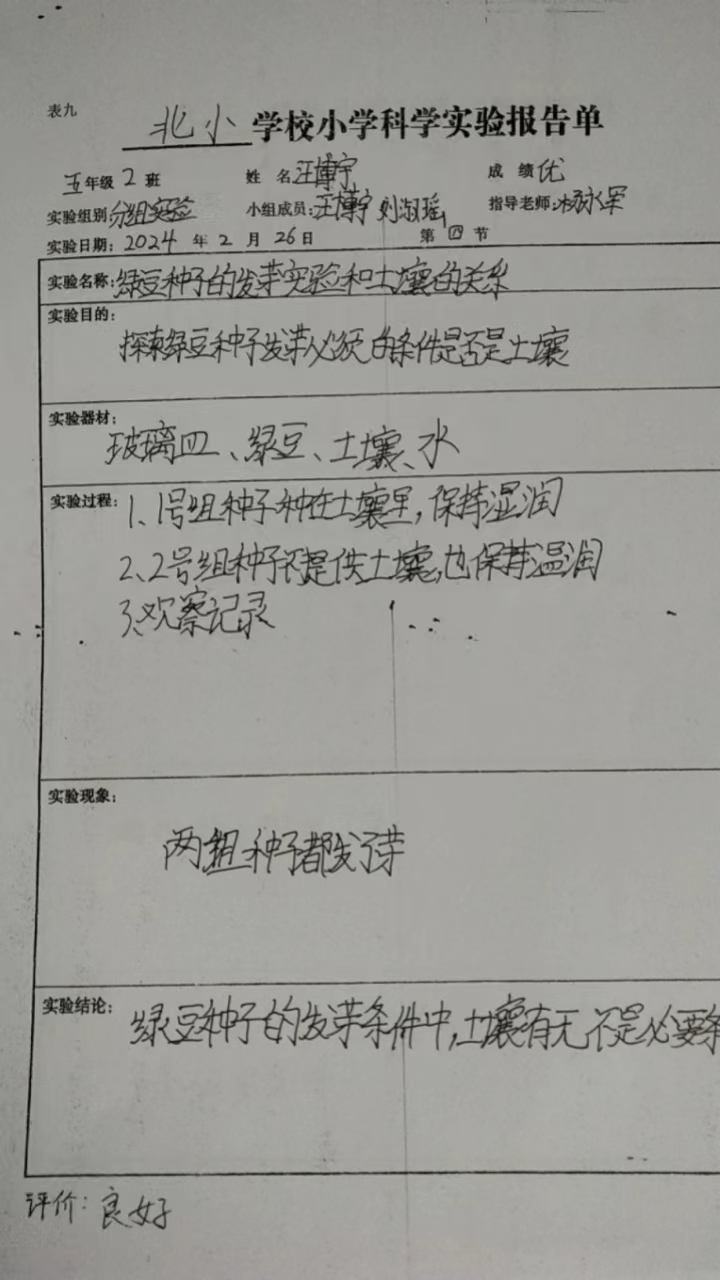 表九
北小学校小学科学实验报告单
五年级 2 班 姓 名 汪博宇 成 绩 优
实验组别:分组实验 小组成员:汪博宇 刘淑瑶 指导老师:杨永军
实验日期:2024 年 2 月 26 日 第 四 节
实验名称:绿豆种子的发芽实验和土壤的关系
实验目的:
探索绿豆种子发芽必须的条件是否是土壤
实验器材:
玻璃皿、绿豆、土壤、水
实验过程: 1、1号组种子种在土壤里,保持湿润
2、2号组种子不提供土壤,也保持温润
3、观察记录
实验现象:
两组种子都发了芽
实验结论: 绿豆种子的发芽条件中,土壤有无不是必要条
评价: 良好